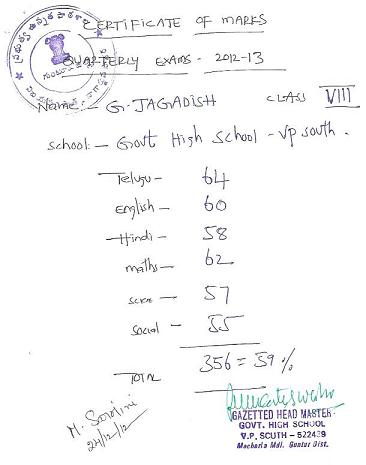 CERTIFICATE OF MARKS
QUARTERLY EXAMS - 2012-13
Name:- G. JAGADISH CLASS VIII
School:- Govt High School - Vp south.
Telugu - 64
English - 60
Hindi - 58
maths - 62
scien - 57
social - 55
TOTAL 356 = 59%
24/12/12
GAZETTED HEAD MASTER
GOVT. HIGH SCHOOL
V.P. SOUTH - 522439
Macherla Mdl. Guntur Dist.